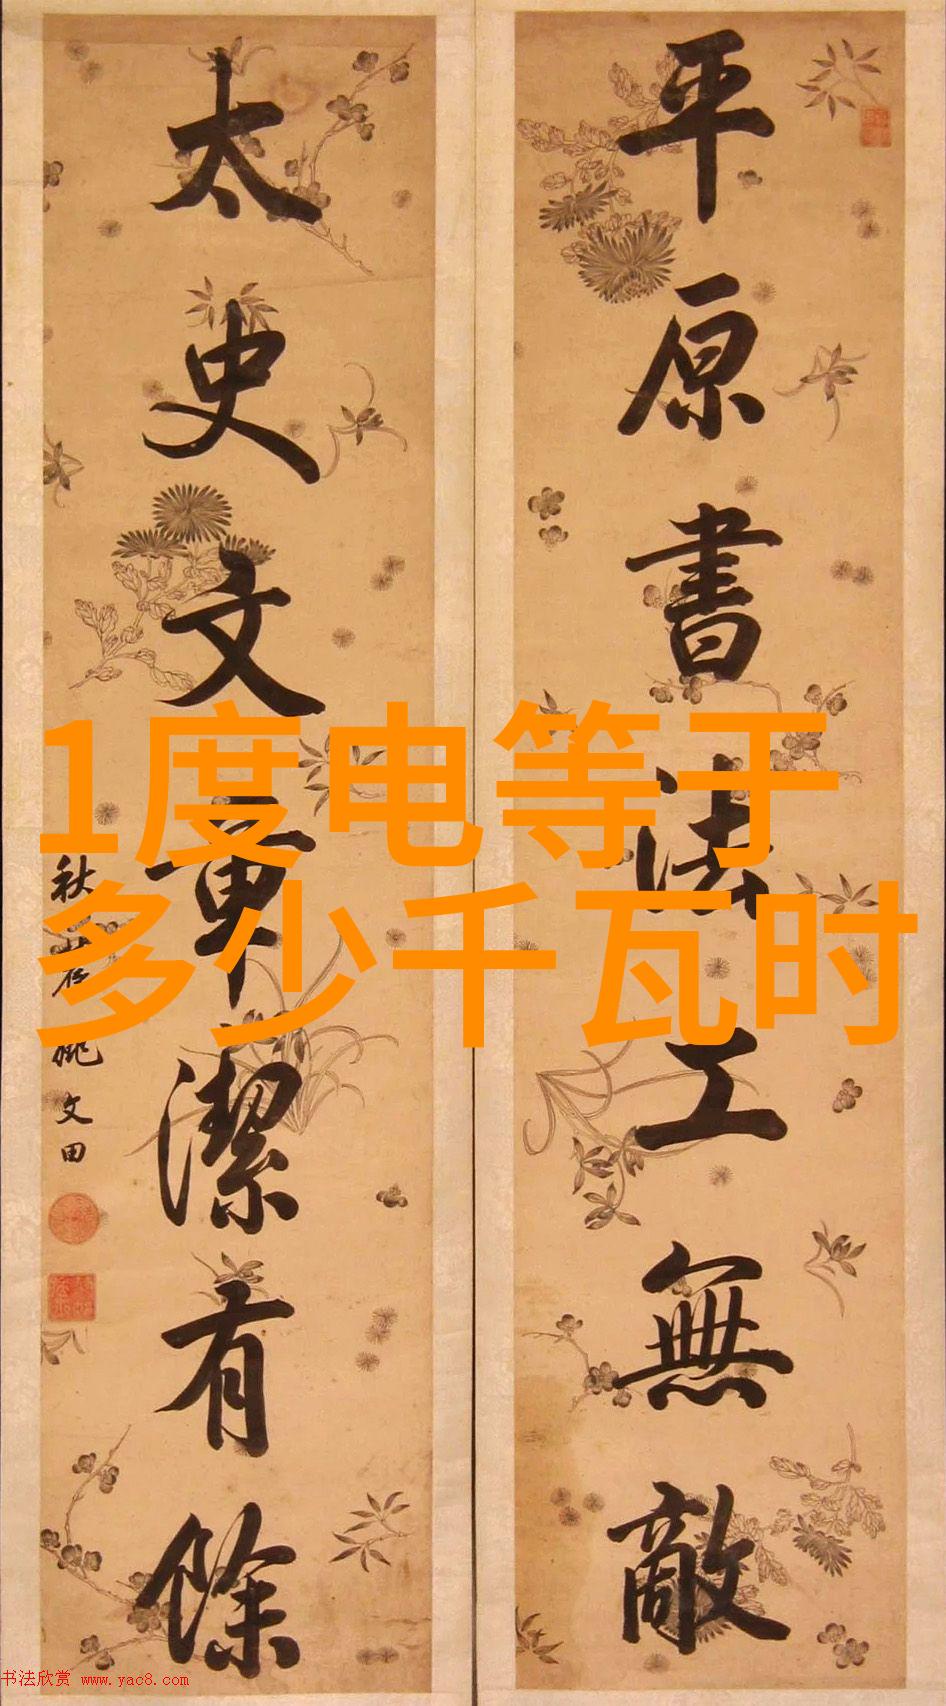 平原書法工無敵
太史文章潔有餘
秋農姚文田
1度电等于
多少千瓦时
书法欣赏 www.yac8.com